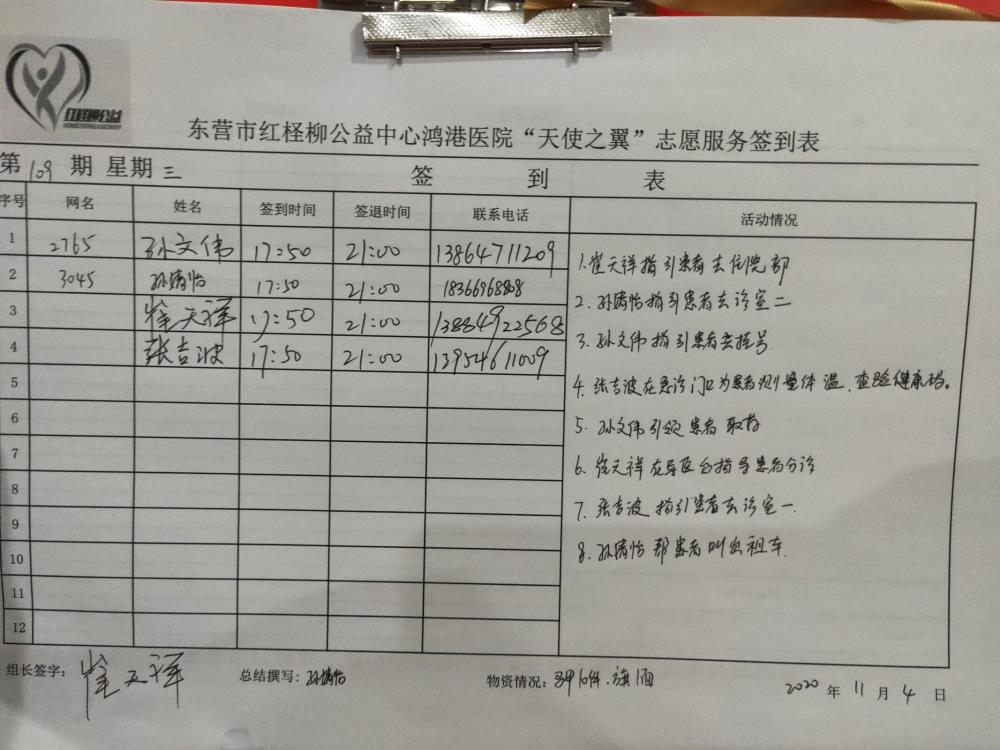 红柽柳公益
东营市红柽柳公益中心鸿港医院“天使之翼”志愿服务签到表
第 109 期 星期 三 签 到 表
序号 网名 姓名 签到时间 签退时间 联系电话 活动情况
1 2765 孙文伟 17:50 21:00 13864711209
2 3045 孙靖怡 17:50 21:00 18366968808
3 崔天祥 17:50 21:00 13884922568
4 张吉波 17:50 21:00 13954611009
5
6
7
8
9
10
11
12
1.崔天祥指引患者去住院部
2.孙靖怡指引患者去诊室二
3.孙文伟指引患者去挂号.
4.张吉波在急诊门口为患者测量体温、查验健康码。
5.孙文伟引领患者取药
6.崔天祥在导医台指导患者分诊
7.张吉波指引患者去诊室一.
8.孙靖怡帮患者叫出租车.
组长签字: 崔天祥 总结撰写: 孙靖怡 物资情况: 10件.旗1面
2020 年 11 月 4 日